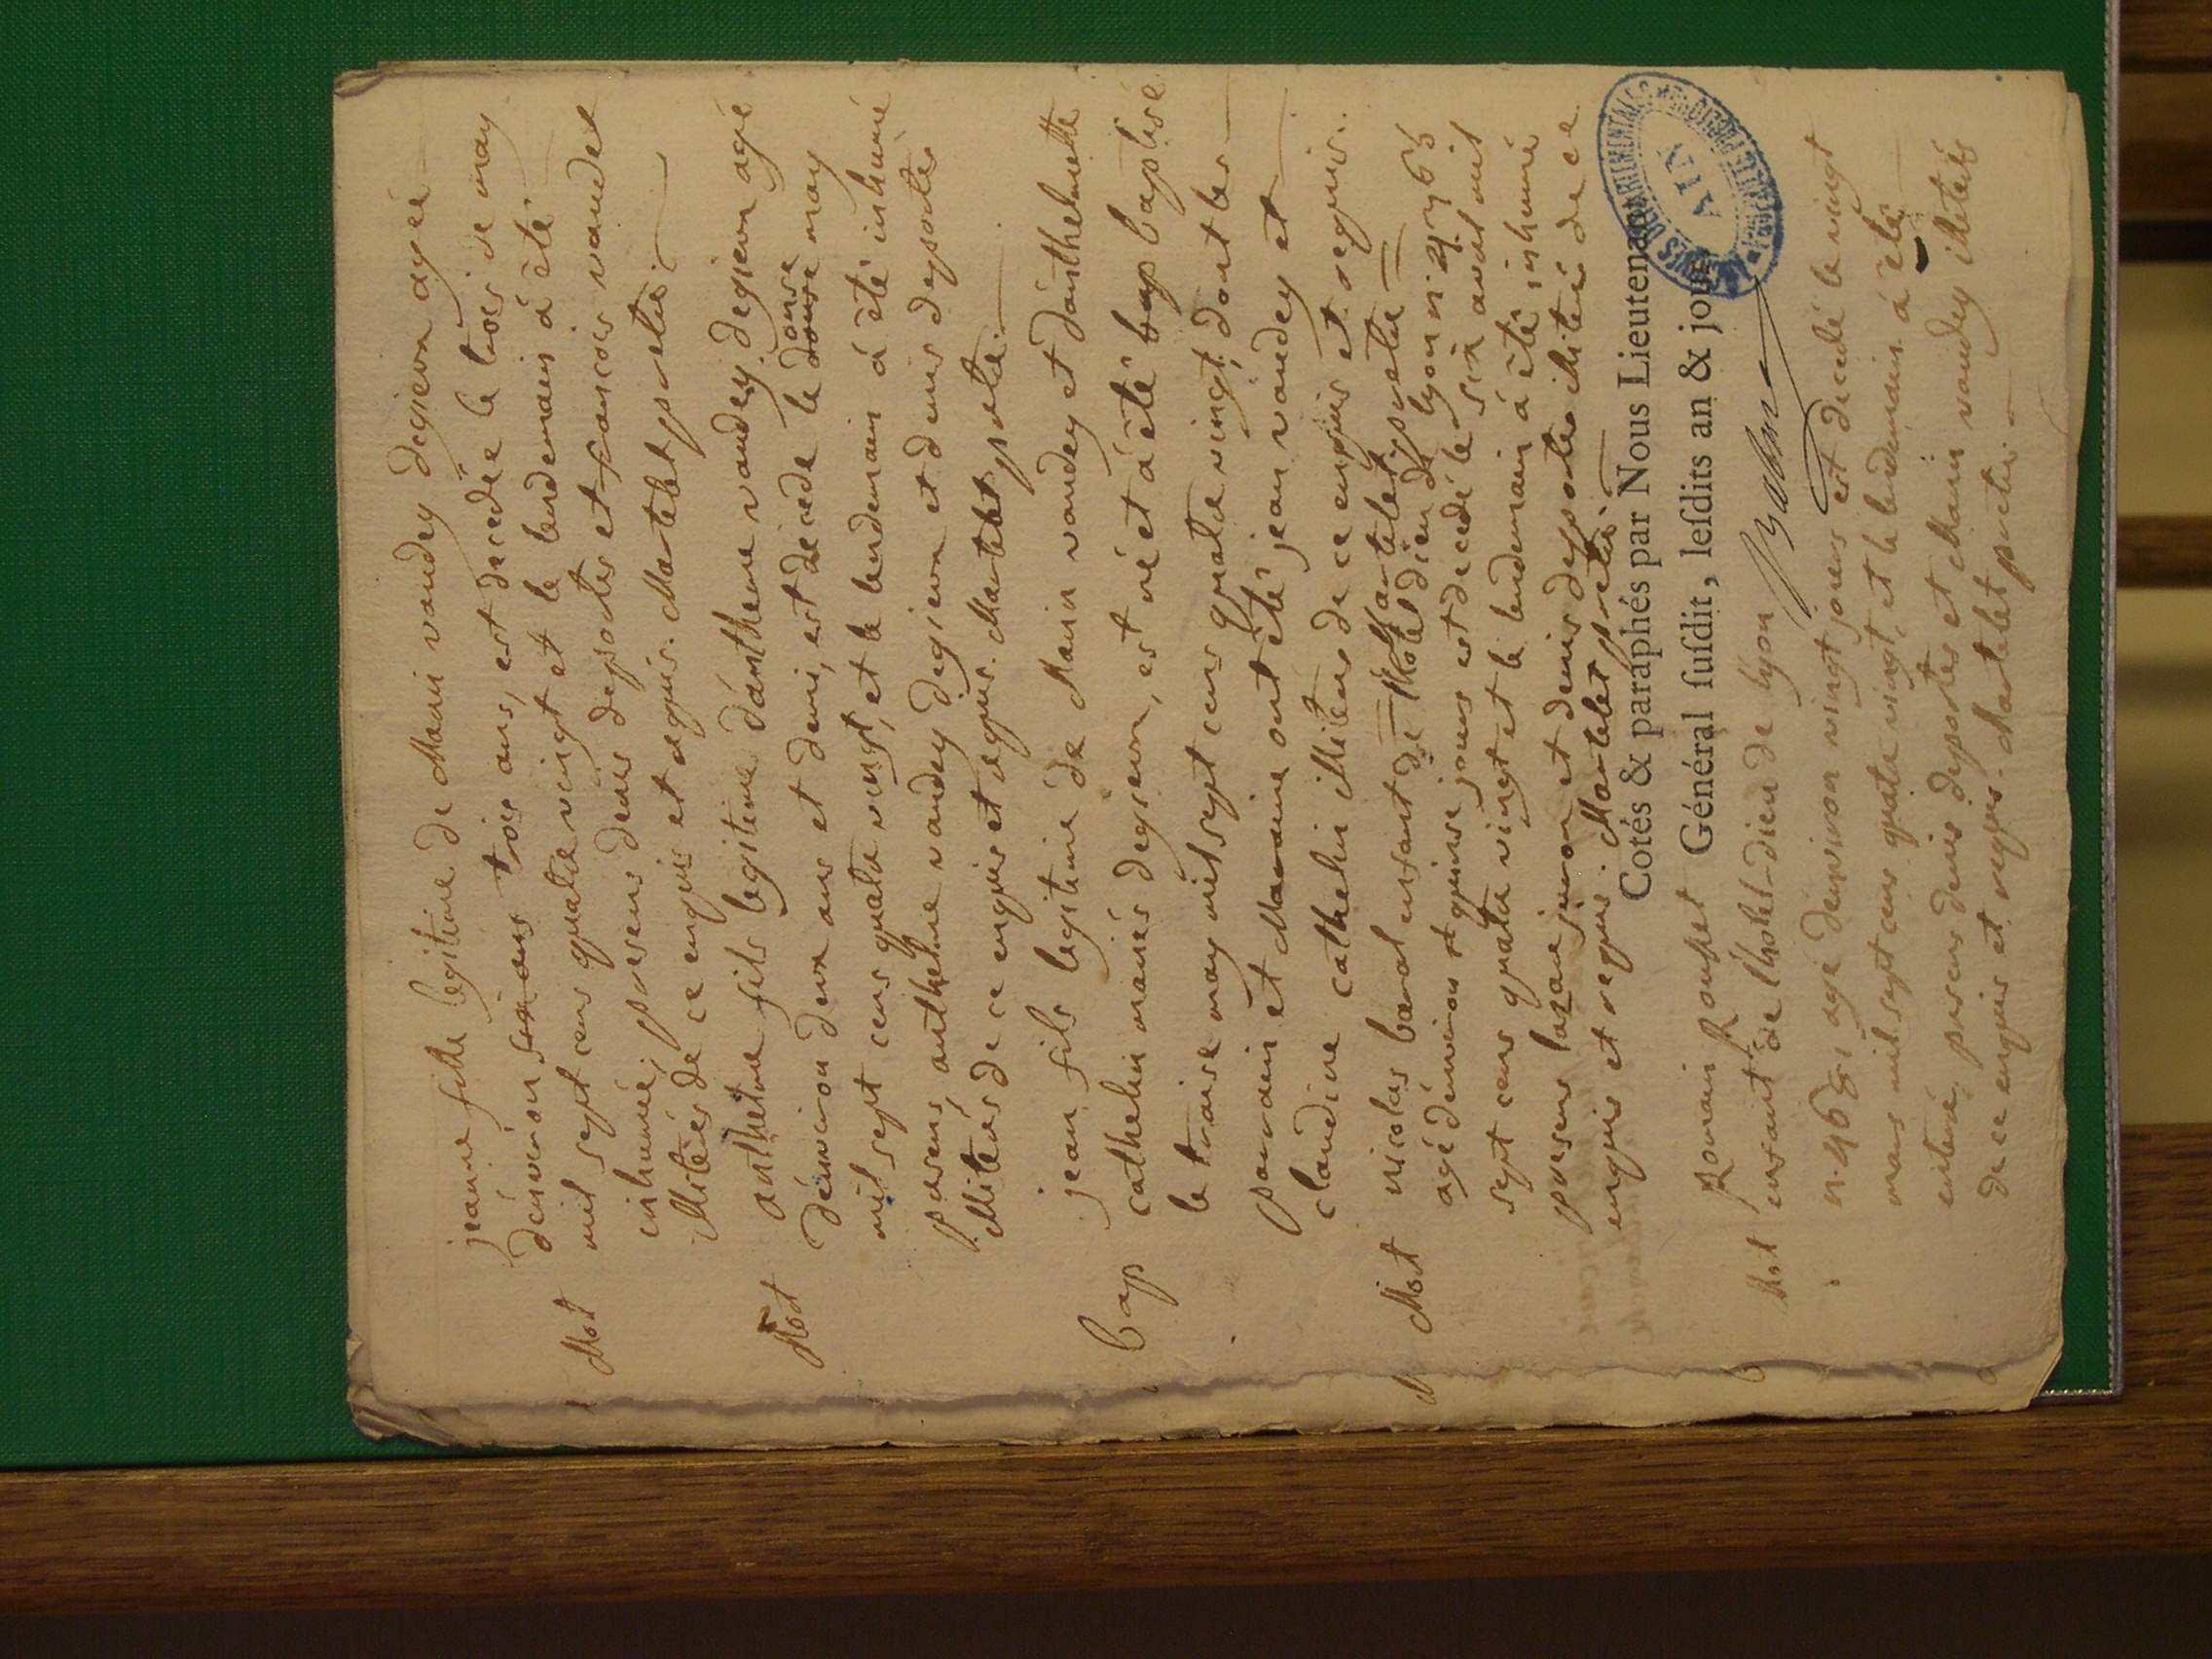 jeanne fille legitime de Marin vandey degieon agée
d'environ trois ans, est decedée le trois de may
Mort
mil sept cens quatre vingt et le lendemain á èté
inhumé; presens denis desportes et francois vandel
illiterés de ce enquis et requis. Martelet pretre
anthelme fils legitime d'anthelme vandey degieon agé
Mort
d'environ deux ans et demi, est decede le onse may
mil sept cens quatre vingt, et le lendemain á èté inhumé
presens, anthelme vandey degieon et denis desportes
illiterés de ce enquis et requis. Martelet pretre
jean fils legitime de Marin vandey et d'anthelmette
bap
cathelin mariés degieon, est né et á èté bap baptisé
le traise may mil sept cens quatre vingt, dont les
parrain et Marraine ont èté jean vandey et
claudine cathelin illiteres de ce enquis et requis.
Martelet pretre
Mort
nicolas enfant de l'hotel dieu de lyon
agé d'environ quinse jours est decedé le six avril mil
sept cens quatre vingt et le lendemain á èté inhumé
presens et denis desportes illiterés de ce
enquis et requis. Martelet pretre
Cotés & paraphés par Nous Lieutenant
Général ſuſdit, leſdits an & jour
ARCHIVES DEPARTEMENTALES
AIN
Romain
Mort
enfant de l'hotel-dieu de lyon
agé d'environ vingt jours est decedé le vingt
mars mil sept cens quatre vingt, et le lendemain á èté
enterré, presens denis desportes et Marin vandey illiterés
de ce enquis et requis. Martelet pretre